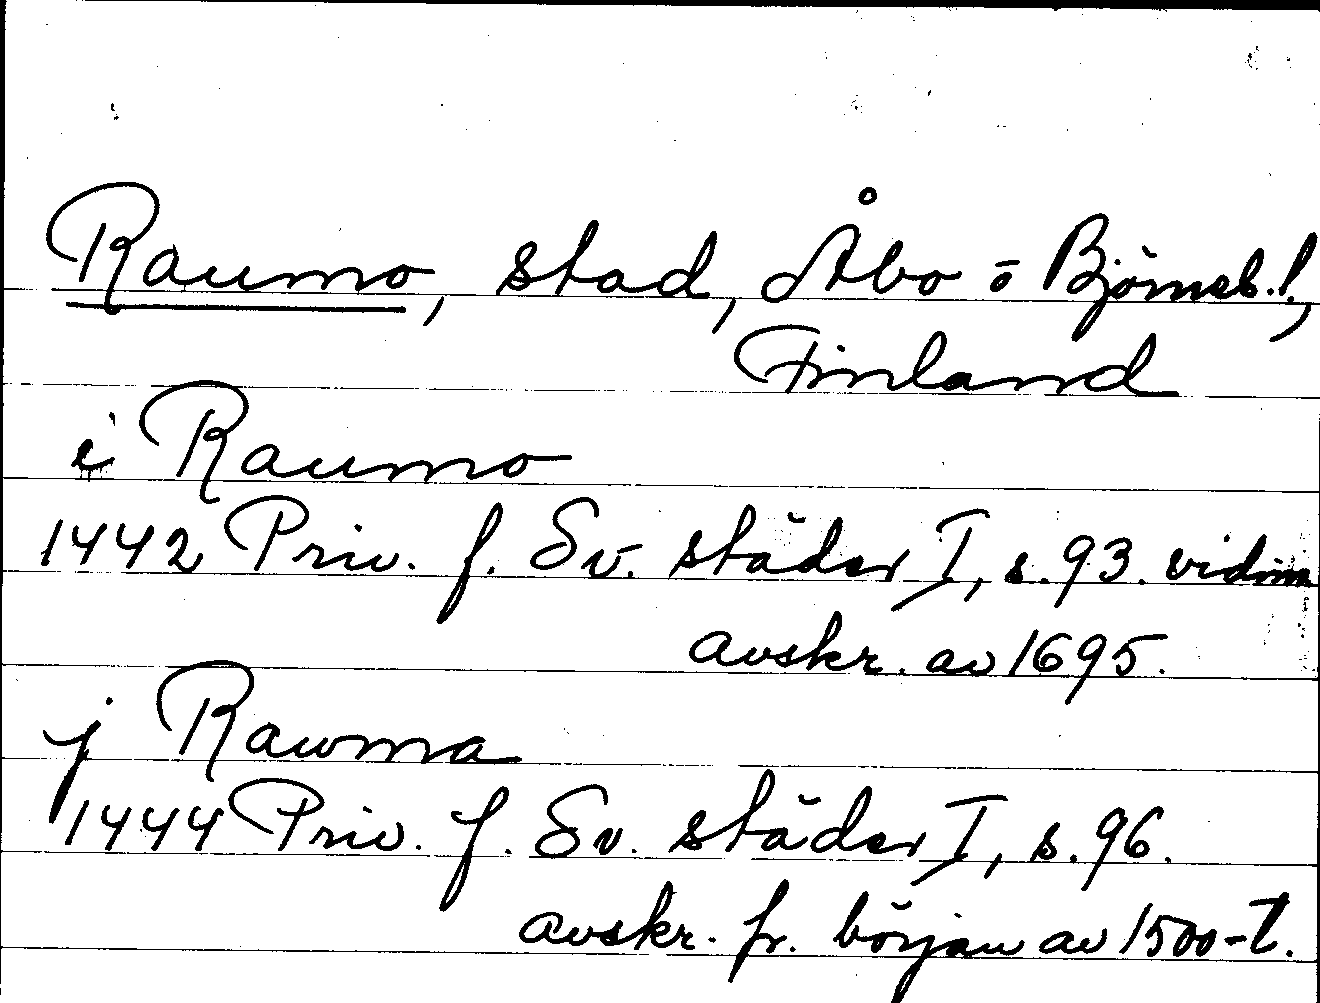 Raumo, stad, Åbo o Björneb.l.,
Finland
i Raumo
1442 Priv. f. Sv. städer I, s. 93. vidim
avskr. av 1695.
j Rawma
1444 Priv. f. Sv. städer I, s. 96.
avskr. fr. början av 1500-t.